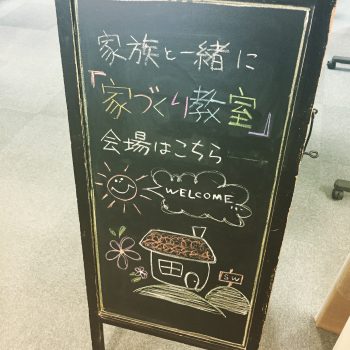 家族と一緒に
「家づくり教室」
会場はこちら
WELCOME
SW